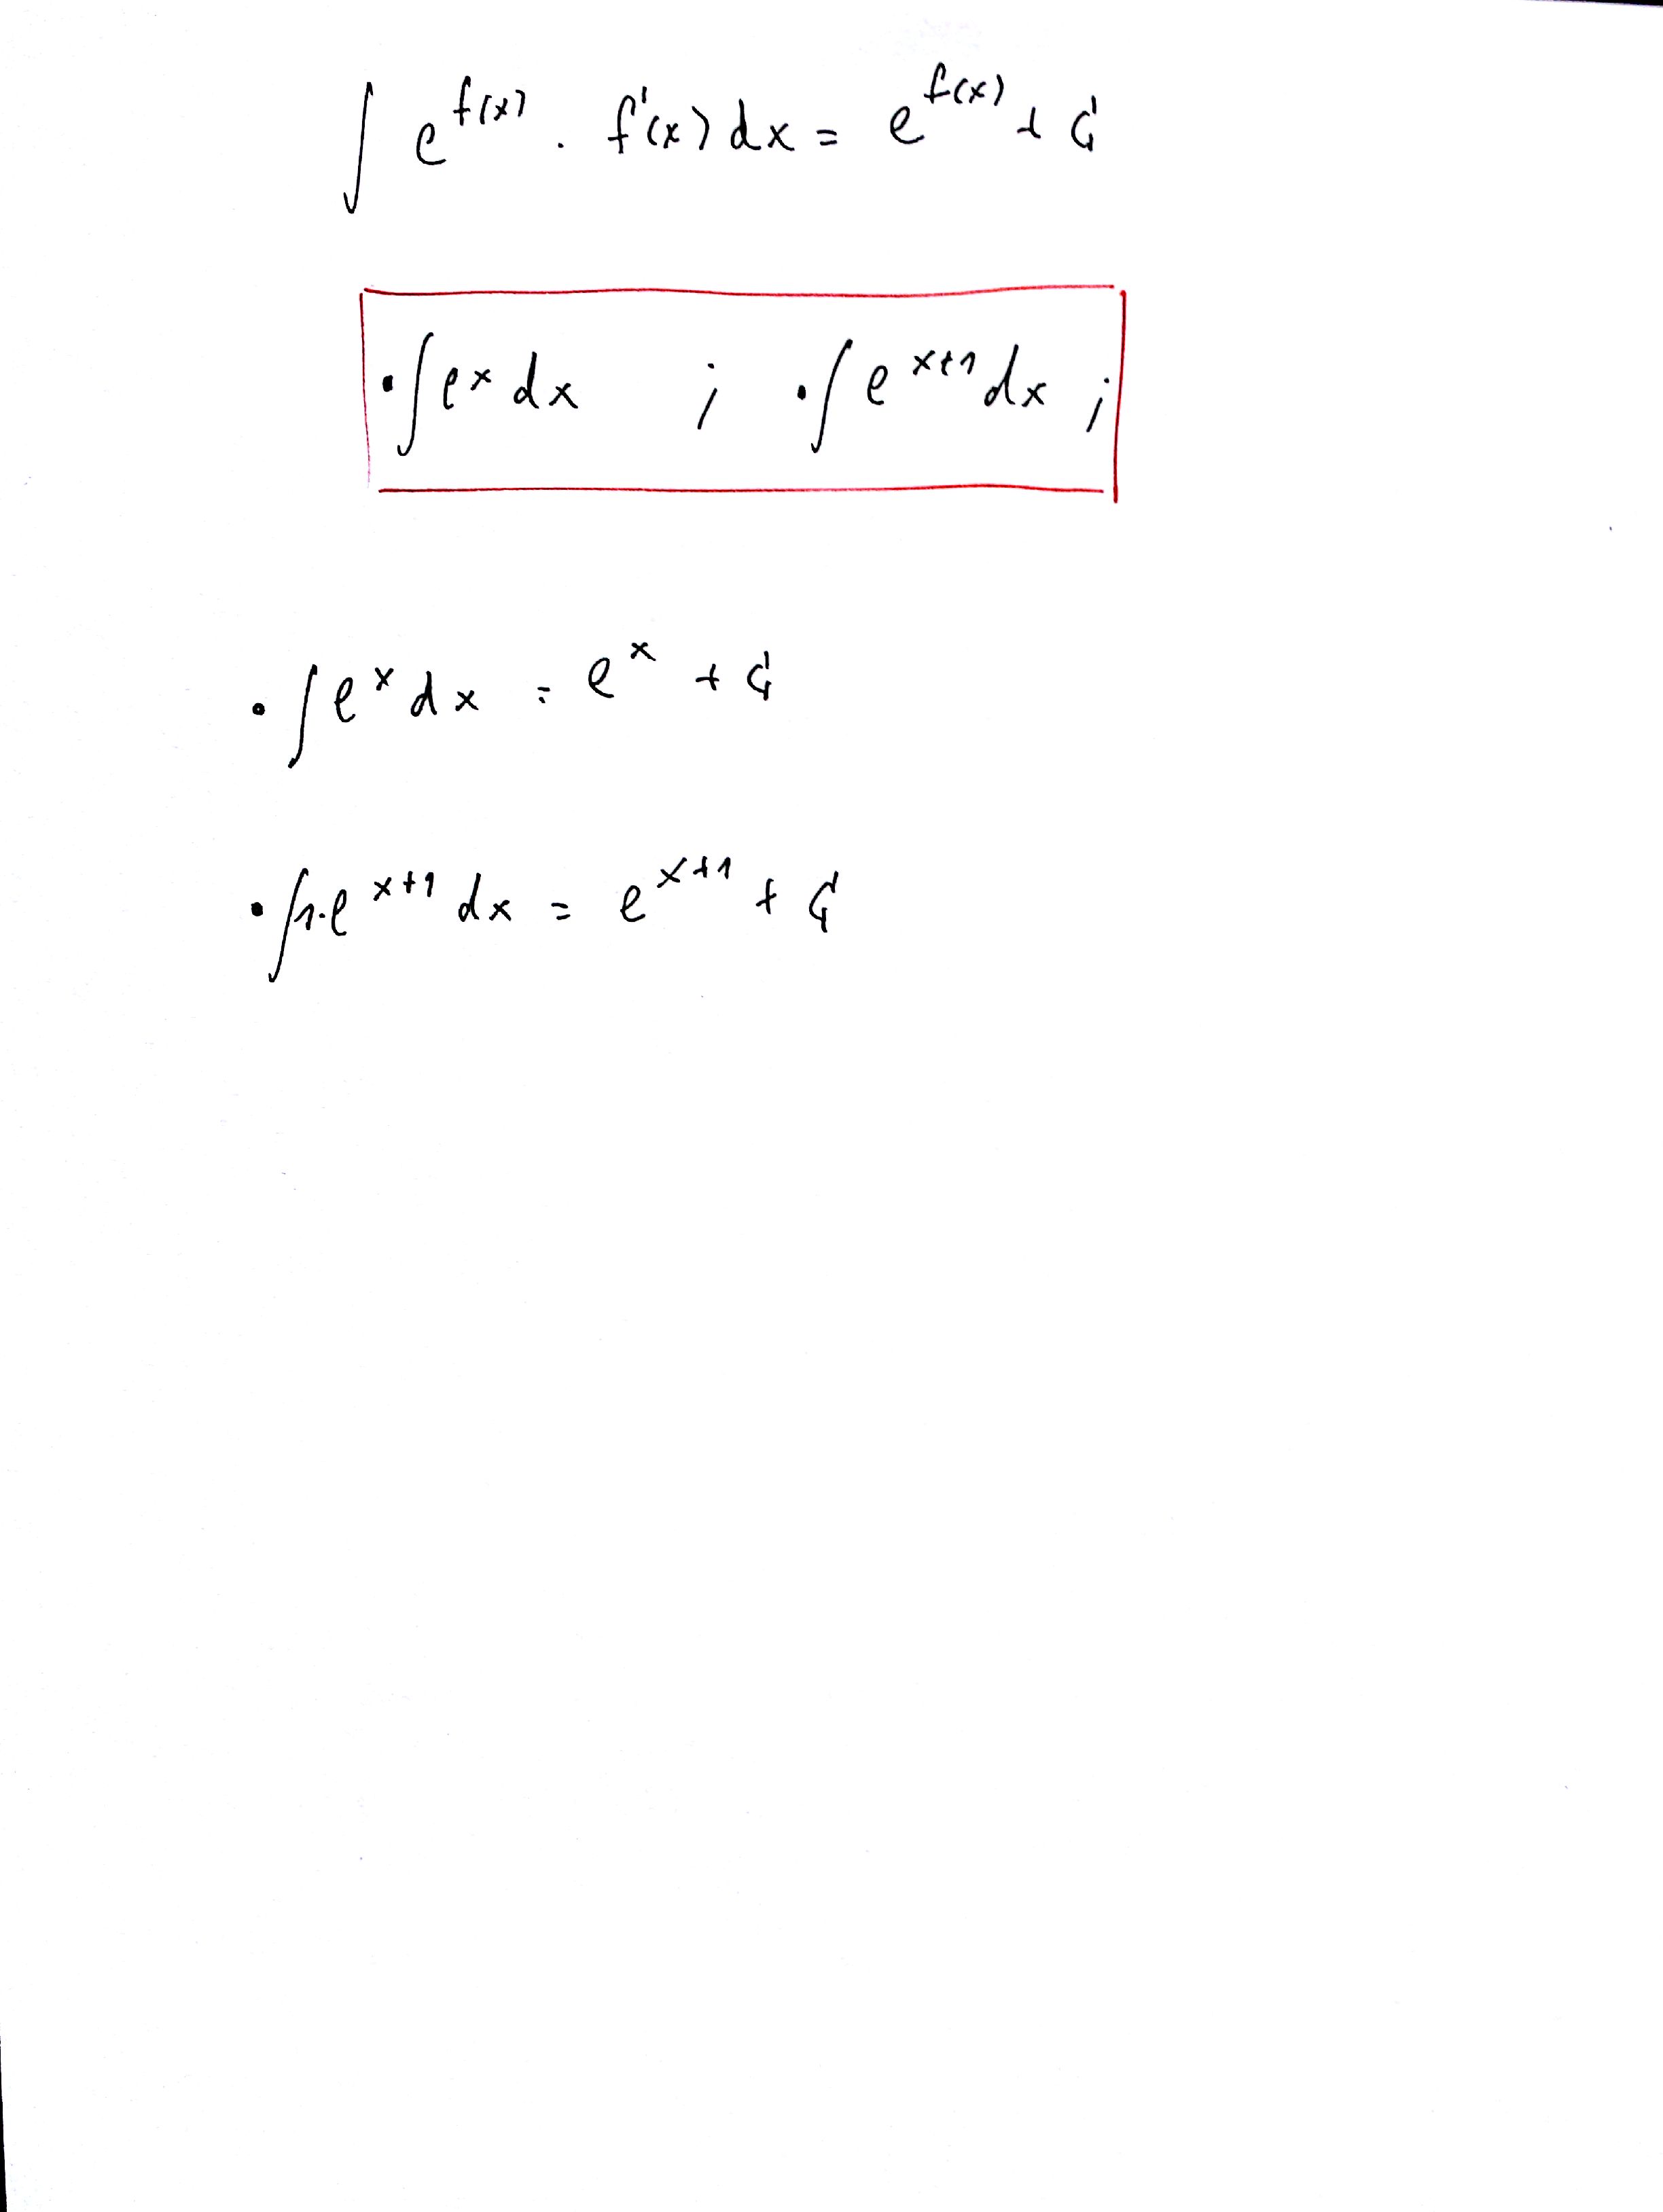 ∫ e^{f(x)} · f'(x) dx = e^{f(x)} + C
• ∫ e^x dx ; • ∫ e^{x+1} dx ;
• ∫ e^x dx = e^x + C
• ∫ 1·e^{x+1} dx = e^{x+1} + C